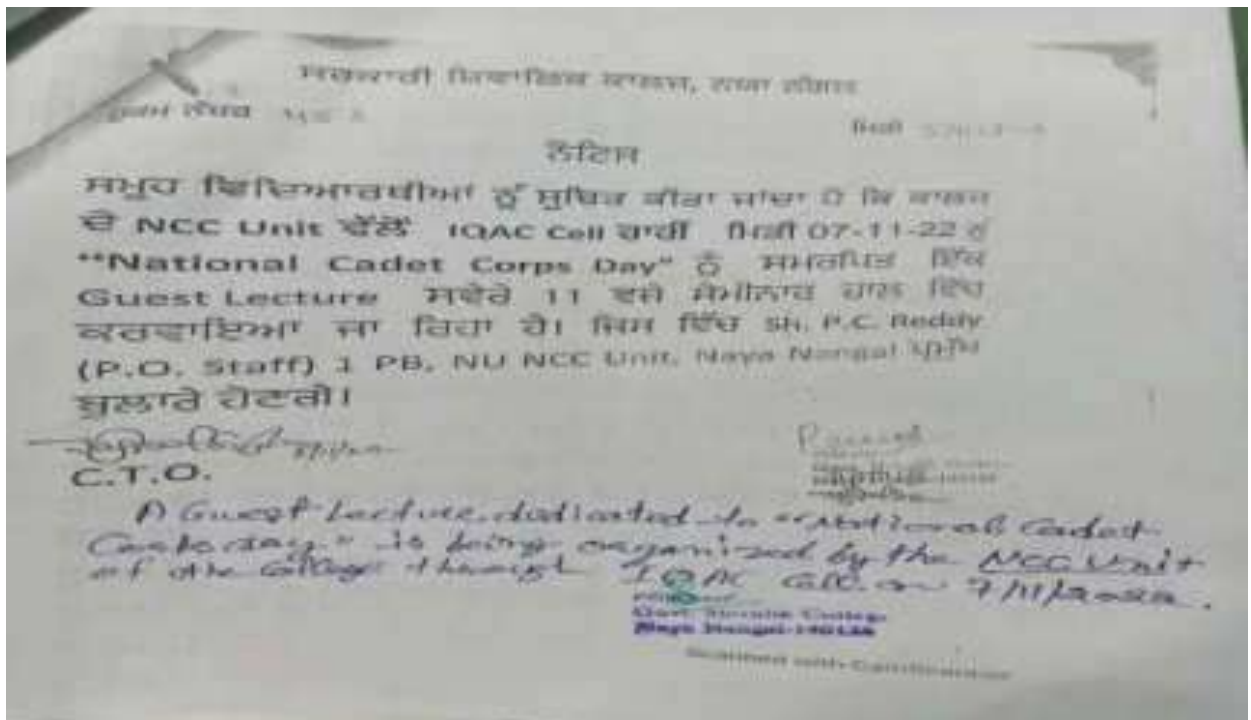 ਸਰਕਾਰੀ ਸ਼ਿਵਾਲਿਕ ਕਾਲਜ, ਨਯਾ ਨੰਗਲ
ਨੰਬਰ
ਮਿਤੀ
ਨੋਟਿਸ
ਸਮੂਹ ਵਿਦਿਆਰਥੀਆਂ ਨੂੰ ਸੂਚਿਤ ਕੀਤਾ ਜਾਂਦਾ ਹੈ ਕਿ ਕਾਲਜ
ਦੇ NCC Unit ਵੱਲੋਂ IQAC Cell ਰਾਹੀਂ ਮਿਤੀ 07-11-22 ਨੂੰ
"National Cadet Corps Day" ਨੂੰ ਸਮਰਪਿਤ ਇੱਕ
Guest Lecture ਸਵੇਰੇ 11 ਵਜੇ ਸੈਮੀਨਾਰ ਹਾਲ ਵਿੱਚ
ਕਰਵਾਇਆ ਜਾ ਰਿਹਾ ਹੈ। ਜਿਸ ਵਿੱਚ SH. P.C. Reddy
(P.O. Staff) 1 PB, NU NCC Unit, Naya Nangal ਪ੍ਰਮੁੱਖ
ਬੁਲਾਰੇ ਹੋਣਗੇ।
C.T.O.
ਪ੍ਰਿੰਸੀਪਲ
A Guest Lecture dedicated to "National Cadet
Corps day" is being organized by the NCC Unit
of the College through IQAC Cell on 7/11/2022.
Govt. Shivalik College
Naya Nangal-140126
Scanned with CamScanner